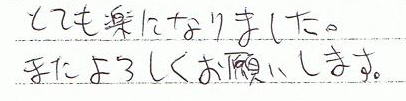 とても楽になりました。
またよろしくお願いします。